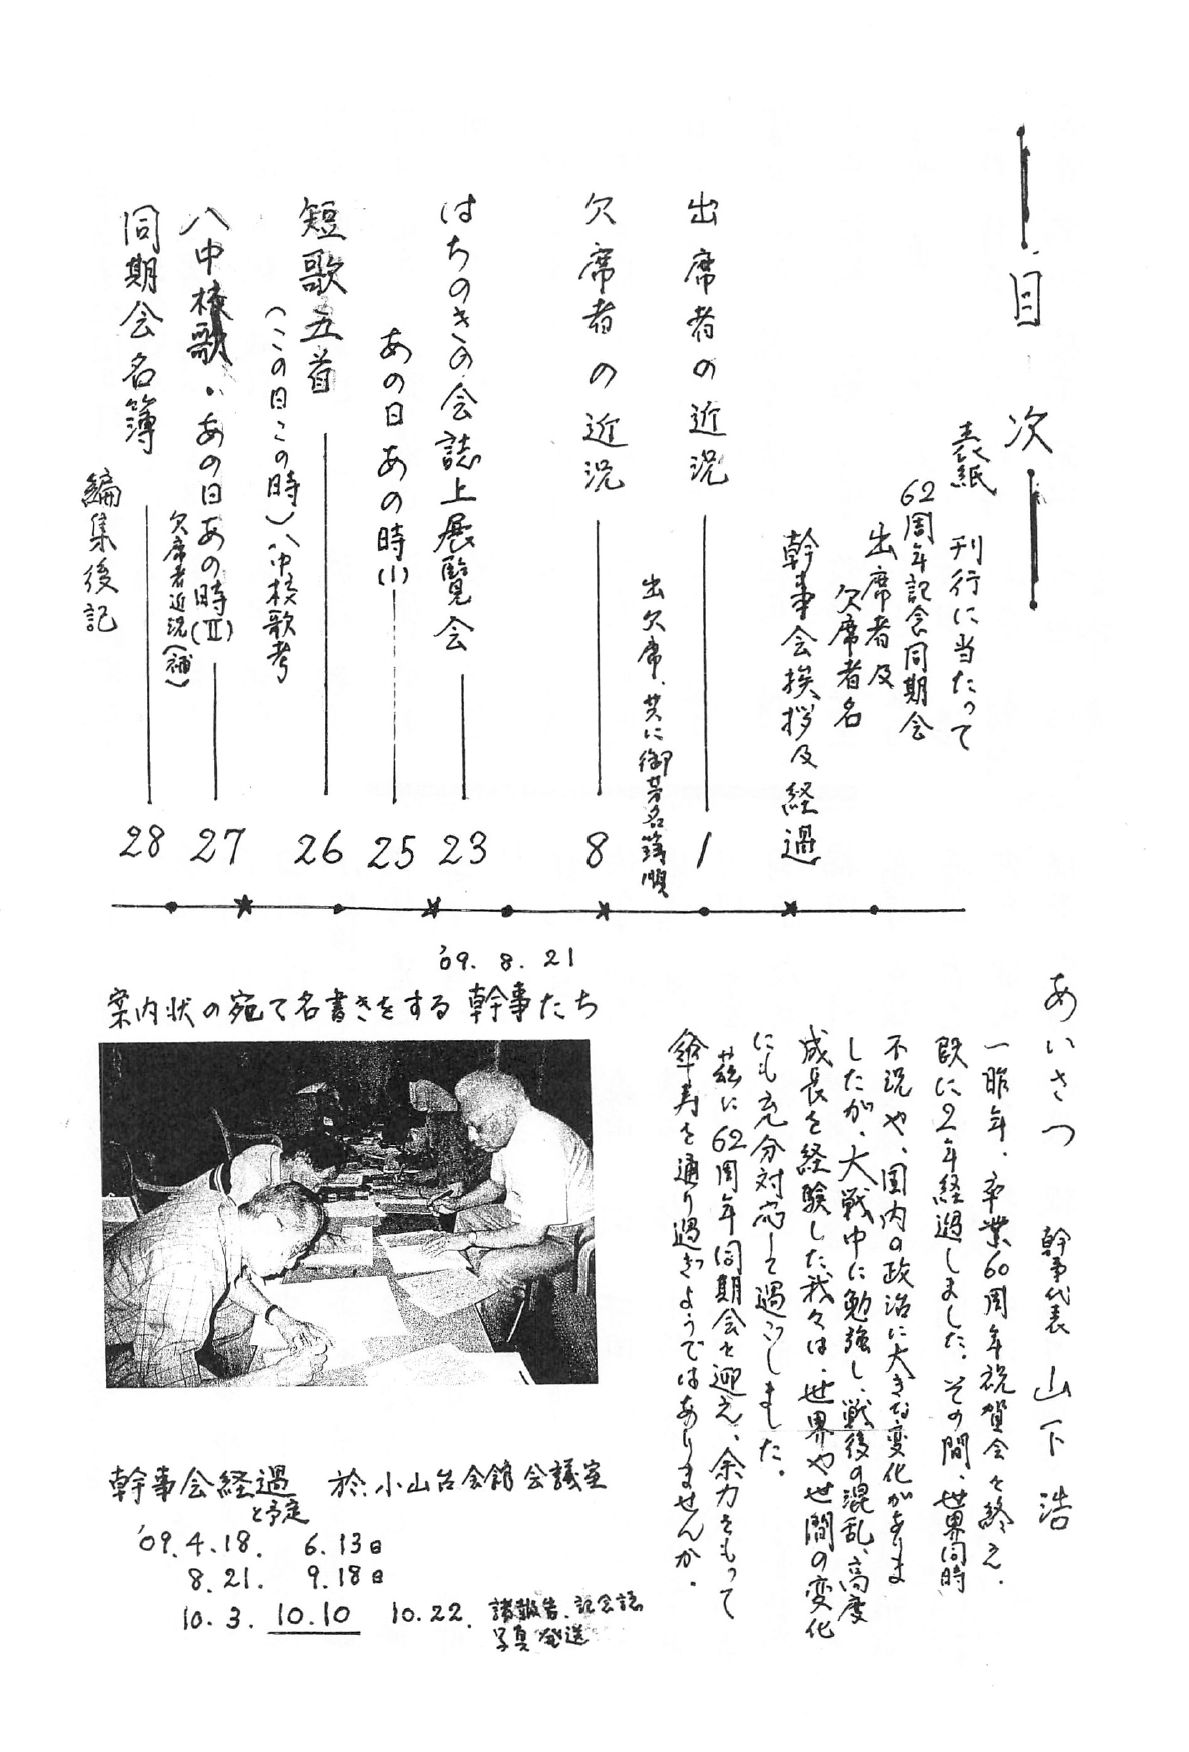 目次
表紙 刊行に当たって
62周年記念同期会
出席者及
欠席者名
幹事会挨拶及経過
出席者の近況 1
出欠席、共に御芳名簿順
欠席者の近況 8
はちのきの会誌上展覧会 23
あの日あの時(I) 25
短歌五首 26
(この日この時)八中校歌考
八中校歌・あの日あの時(II) 27
欠席者近況(補)
同期会名簿 28
編集後記
あいさつ 幹事代表 山下 浩
一昨年、卒業60周年祝賀会を終え、
既に2年経過しました。その間、世界同時
不況や、国内の政治に大きな変化がありま
したが、大戦中に勉強し、戦後の混乱、高度
成長を経験した我々は、世界や世間の変化
にも充分対応して過ごしました。
茲に62周年同期会を迎え、余力をもって
傘寿を通り過ぎようではありませんか。
'09. 8. 21
案内状の宛て名書きをする幹事たち
幹事会経過 於:小山台会館会議室
と予定
'09. 4. 18. 6. 13日
8. 21. 9. 18日
10. 3. 10. 10 10. 22. 諸報告、記念誌
写真 発送